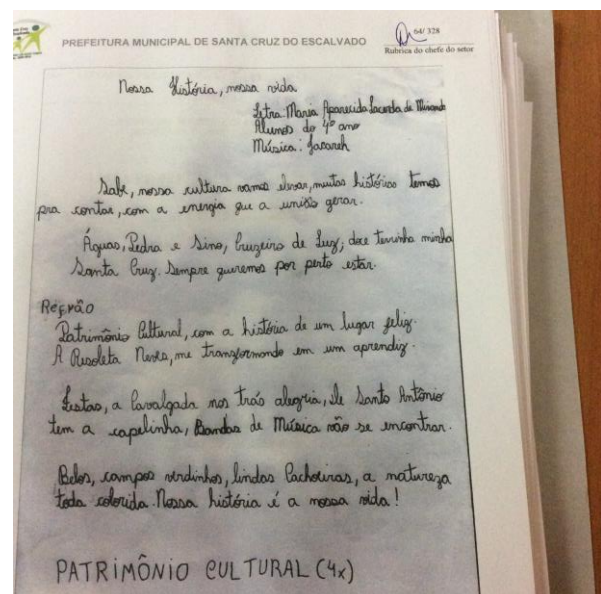 PREFEITURA MUNICIPAL DE SANTA CRUZ DO ESCALVADO
64/ 328
Rubrica do chefe do setor
Nossa História, nossa vida
Letra: Maria Aparecida Lacerda de Miranda
Alunos do 4º ano
Música: Jacareh
Sabe, nossa cultura vamos elevar, muitas histórias temos
pra contar, com a energia que a união gerar.
Águas, Pedra e Sino, Cruzeiro de Luz; doce terrinha minha
Santa Cruz. Sempre queremos por perto estar.
Refrão
Patrimônio Cultural, com a história de um lugar feliz.
A Risoleta Neves, me transformando em um aprendiz.
Festas, a Cavalgada nos trás alegria, de Santo Antônio
tem a capelinha, Bandas de Música vão se encontrar.
Belos, campos verdinhos, lindas Cachoeiras, a natureza
toda colorida. Nossa história é a nossa vida!
PATRIMÔNIO CULTURAL (4x)